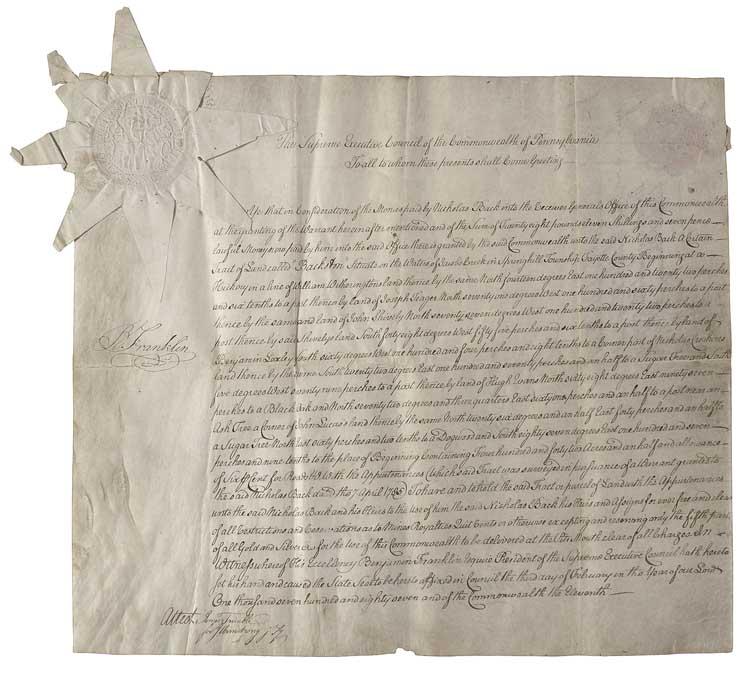 The Supreme Executive Council of the Commonwealth of Pennsylvania
To all to whom these presents shall Come Greeting
that in Consideration of the Monies paid by Nicholas Back into the Receiver Generals Office of this Commonwealth
at the granting of the Warrant herein after mentioned and of the Sum of Twenty eight pounds eleven Shillings and seven pence
lawful Money now paid by him into the said Office there is granted by the said Commonwealth unto the said Nicholas Back A Certain
Tract of Land called Situate on the Waters of Jacobs Creek in Springhill Township Fayette County Beginning at a
Hickory in a line of William thence by the same North fourteen degrees East one hundred and twenty two perches
and six tenths to a post thence by land of Joseph North seventy one degrees West one hundred and sixty perches to a post
thence by the same and land of John Shively North seventy seven degrees West one hundred and twenty two perches to a
post thence by said Shivelys land South forty eight degrees West fifty five perches and six tenths to a post thence by land of
Benjamin Loxley South sixty degrees West one hundred and four perches and eight tenths to a Corner post of Nicholas
land thence by the same South twenty two degrees East one hundred and seventy perches and an half to a Sugar Tree and South
five degrees West twenty nine perches to a post thence by land of Hugh Evans North sixty eight degrees East ninety seven
perches to a Black Oak and North seventy two degrees and three quarters East sixty one perches and an half to a post near an
Ash Tree a Corner of John Lucas's land thence by the same North twenty six degrees and an half East forty perches and an half to
a Sugar Tree North East sixty perches and two tenths to a Dogwood and South eighty seven degrees East one hundred and seven
perches and nine tenths to the place of Beginning Containing Four hundred and forty two Acres and an half and allowance
of Six ⅌ Cent for Roads &c With the Appurtenances (which said Tract was surveyed in pursuance of a Warrant granted to
the said Nicholas Back dated the 7 April 1785) To have and to hold the said Tract or parcel of Land with the Appurtenances
unto the said Nicholas Back and his Heirs to the use of him the said Nicholas Back his Heirs and Assigns for ever free and clear
of all Restrictions and Reservations as to Mines Royalties Quit Rents or otherwise excepting and reserving only the fifth part
of all Gold and Silver Ore for the use of this Commonwealth to be delivered at the Pits Mouth clear of all Charges In
Witness whereof His Excellency Benjamin Franklin Esquire President of the Supreme Executive Council hath hereto
set his hand and caused the State Seal to be hereto affixed in Council the third day of February in the Year of our Lord
One thousand seven hundred and eighty seven and of the Commonwealth the Eleventh
B. Franklin
Attest
James Trimble
for J Armstrong